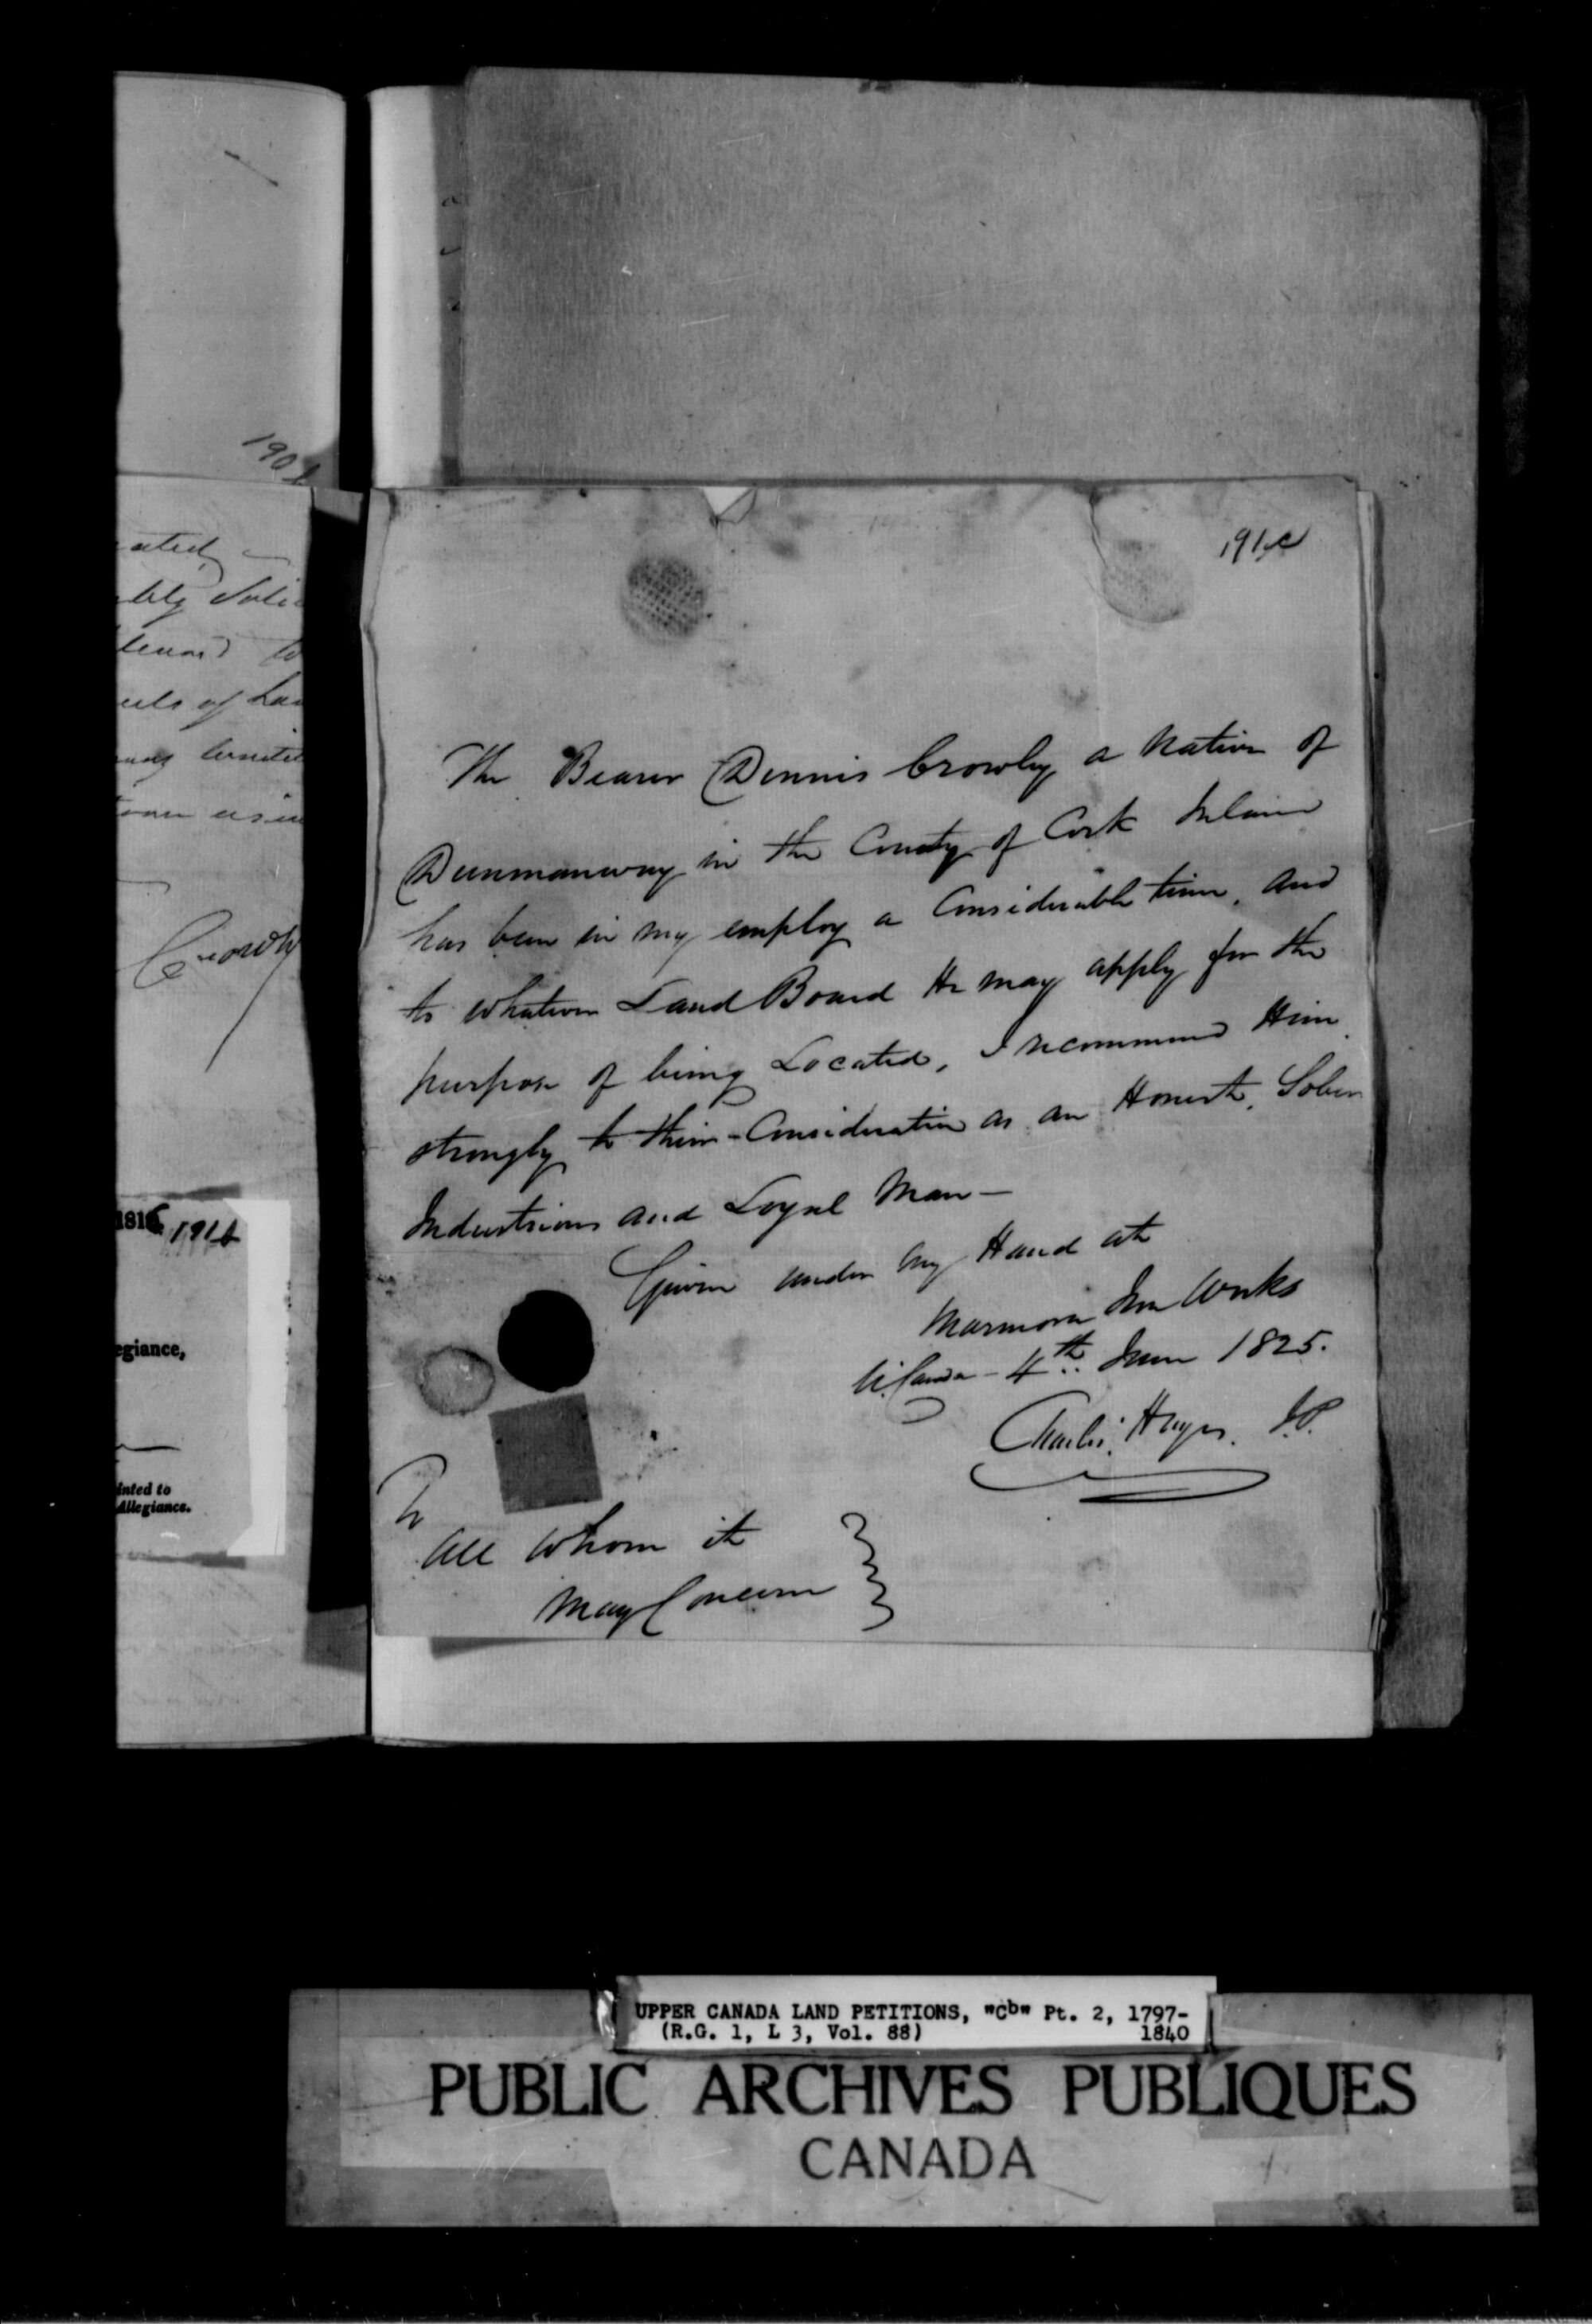 190
ated
bly Solic
uls of Lan
Crowly
181
191b
egiance,
inted to
Allegiance.
191c
The Bearer Dennis Crowley a Native of
Dunmanway in the County of Cork Ireland
has been in my employ a Considerable time, and
to whatever Land Board He may apply for the
purpose of being Located, I recommend Him
strongly to their Consideration as an Honest, Sober
Industrious and Loyal Man —
Given under my Hand at
Marmora Iron Works
U. Canada - 4th June 1825.
Charles Hayes. J.P.
To
all whom it
May Concern
UPPER CANADA LAND PETITIONS, "Cb" Pt. 2, 1797-
(R.G. 1, L 3, Vol. 88) 1840
PUBLIC ARCHIVES PUBLIQUES
CANADA